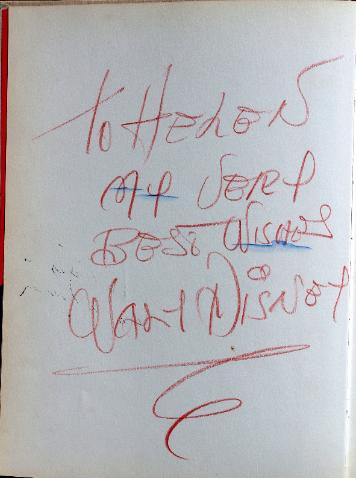 To HELEN
MY VERY
BEST WISHES
WALT DISNEY